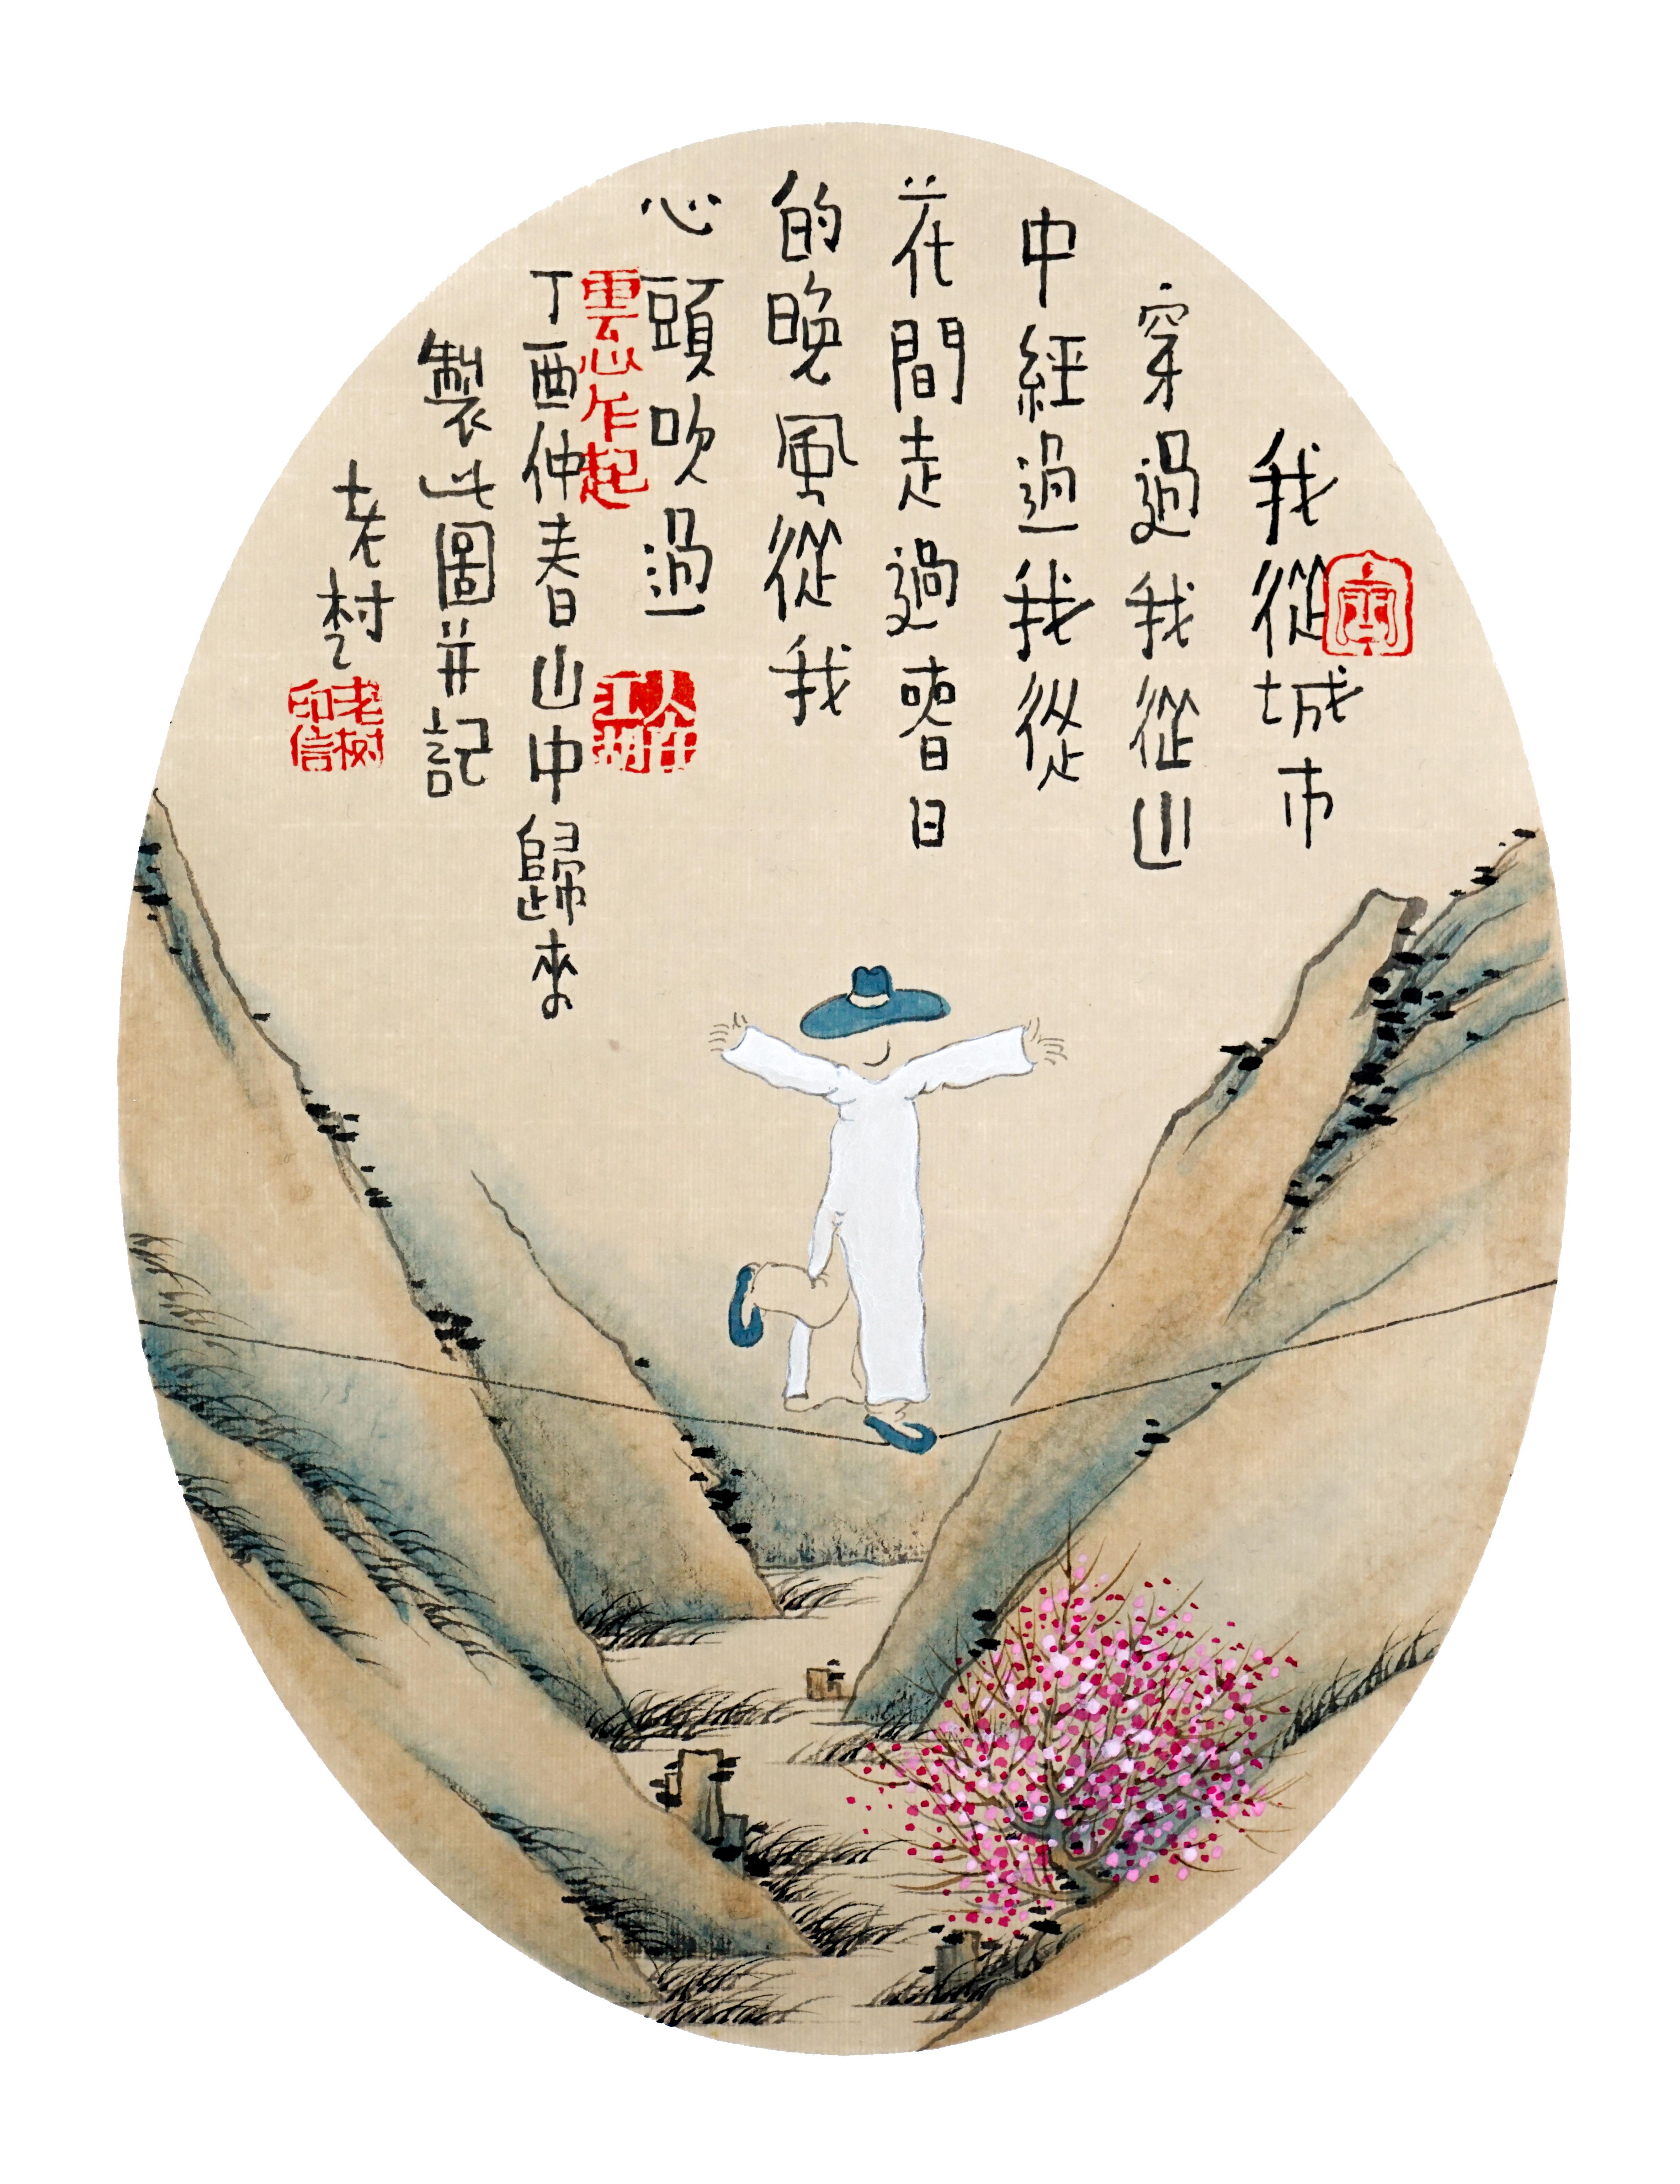 我從城市
穿過我從山
中經過我從
花間走過春日
的晚風從我
心頭吹過
雲心乍起
人在江湖
丁酉仲春山中歸來
製此圖并記
老树
老树印信